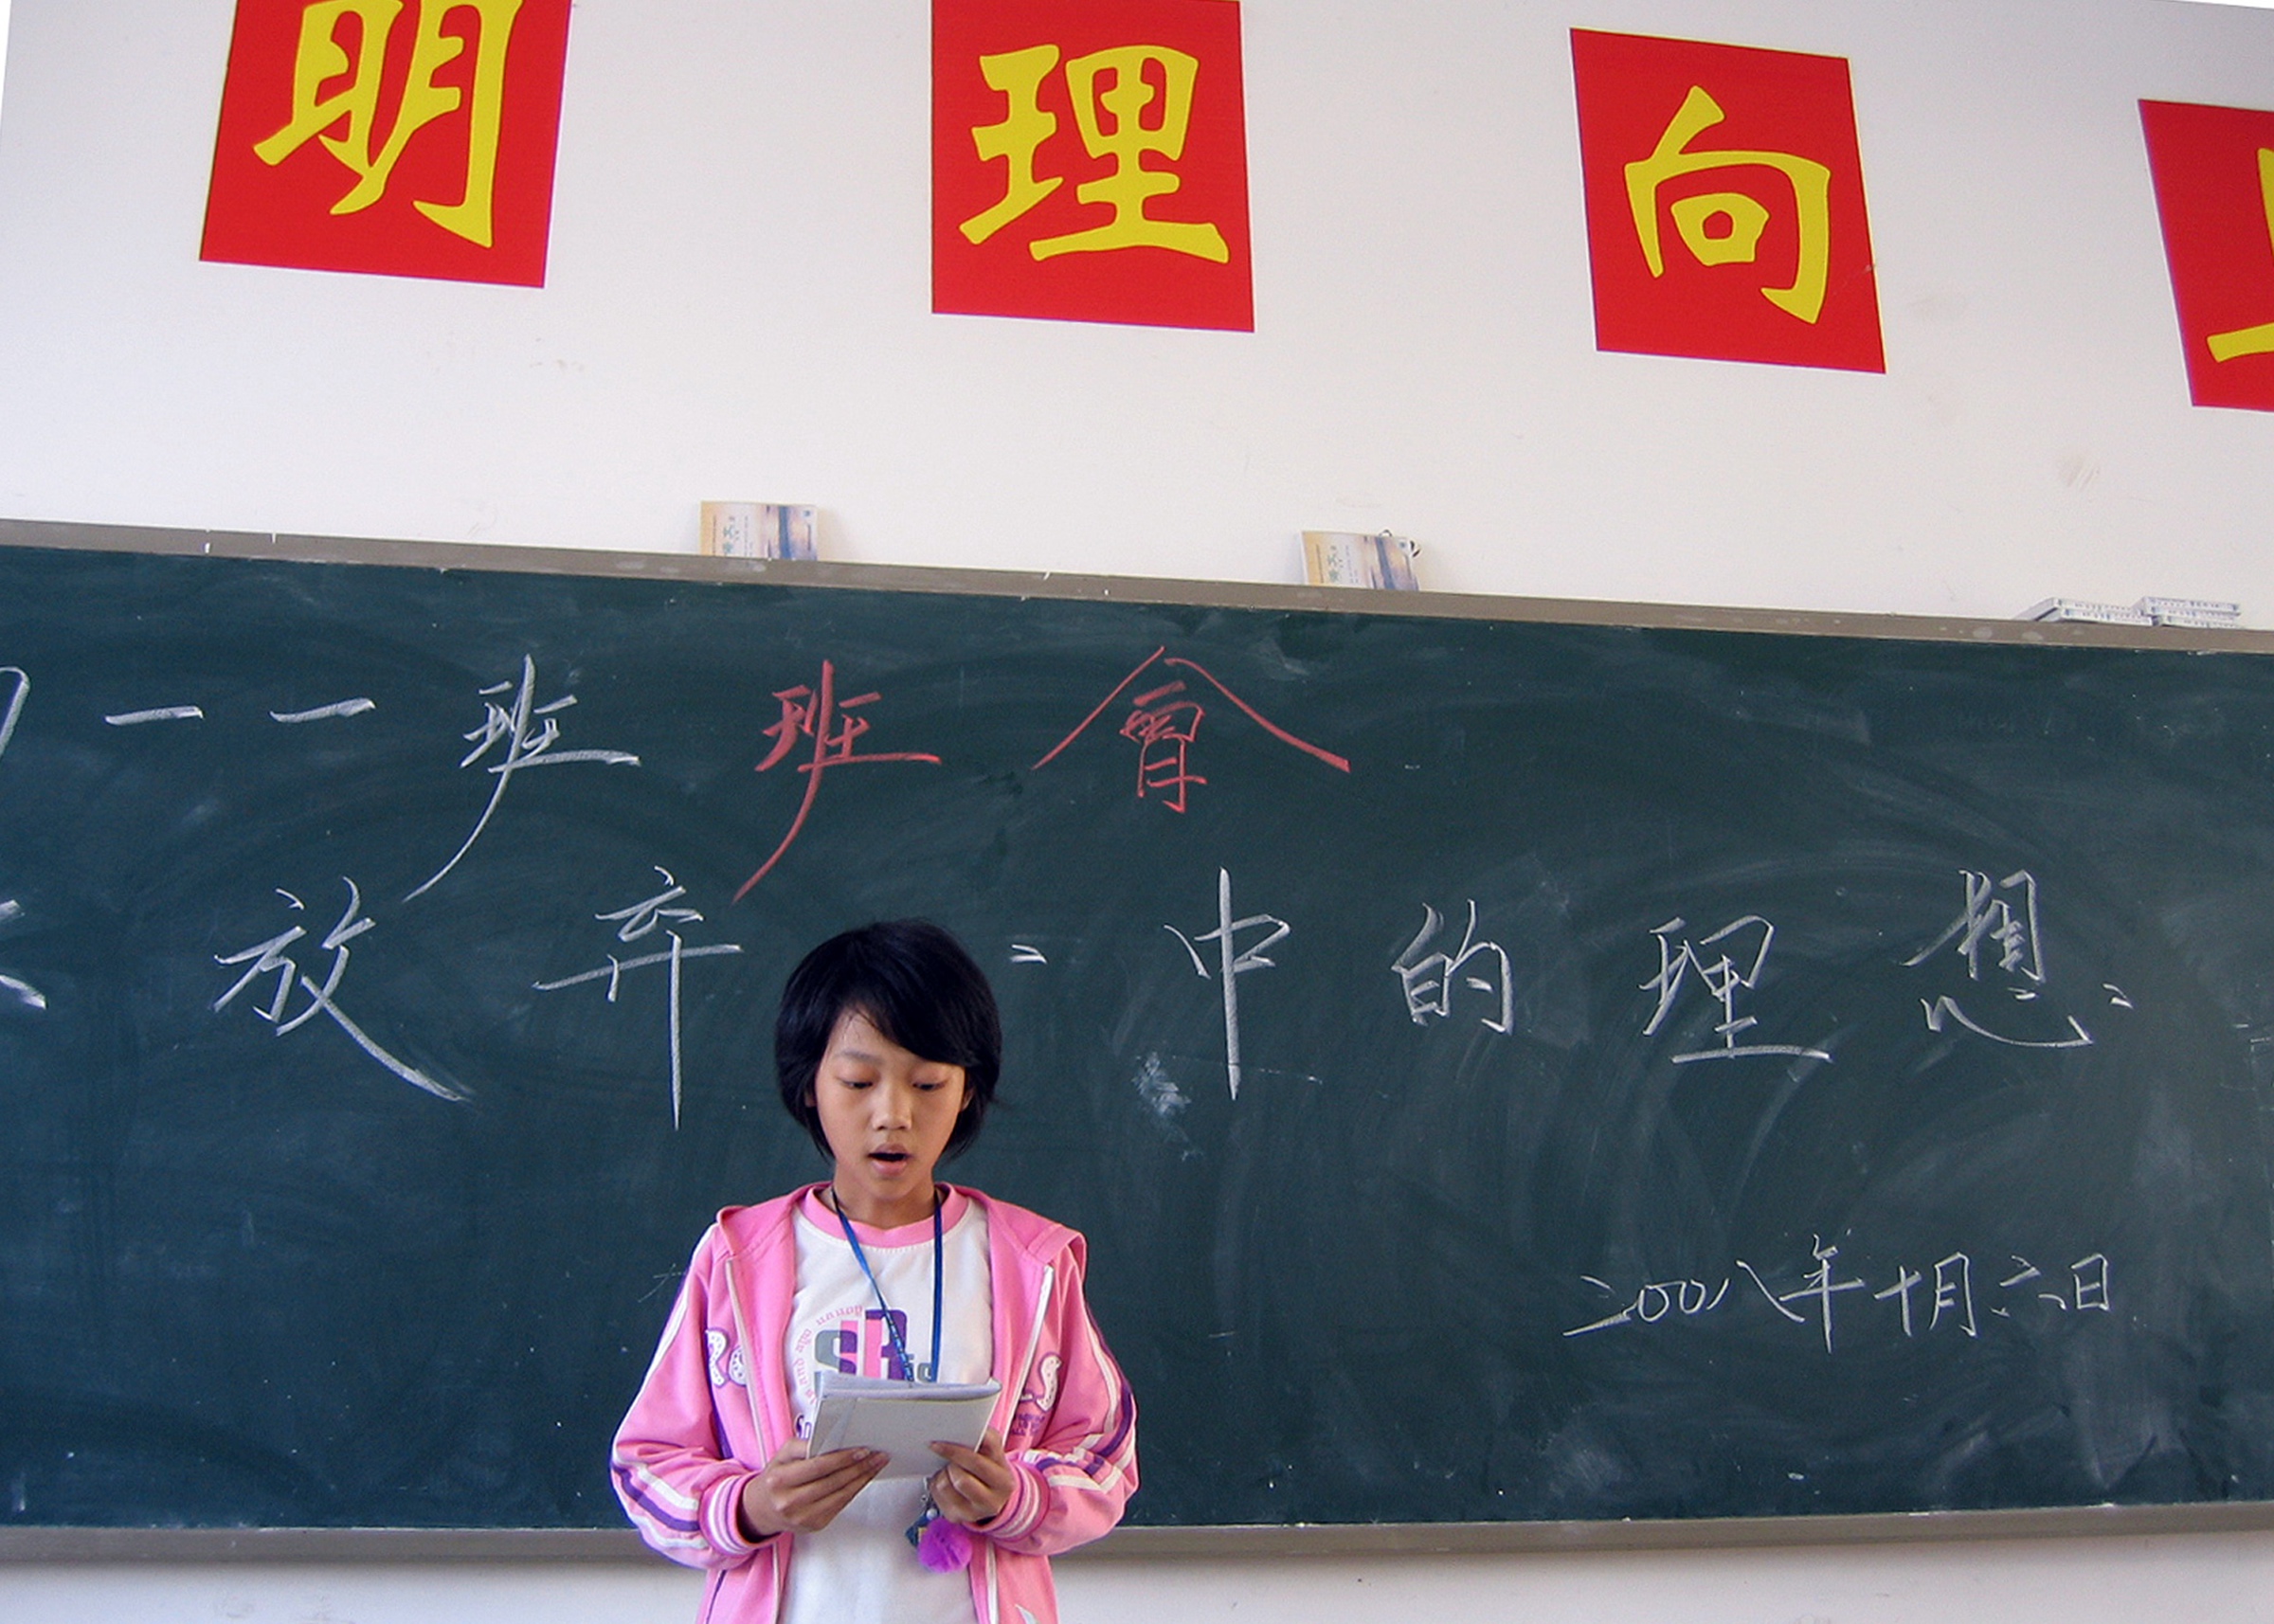 明理向上
一一班班會
放弃 中的理想
二00八年十月六日